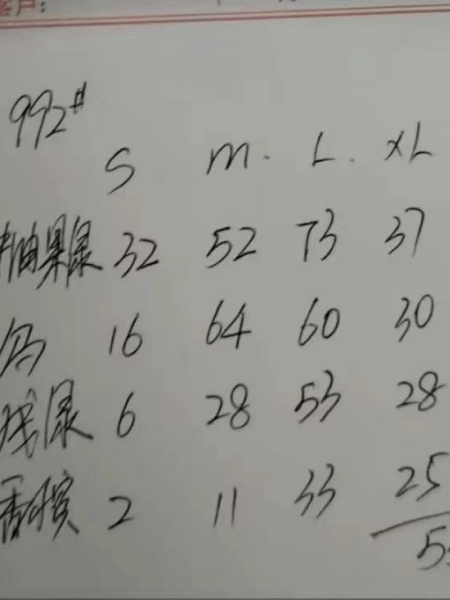 客户:
992#
S M. L. XL
牛油果绿 32 52 73 37
16 64 60 30
浅绿 6 28 53 28
香槟 2 11 33 25